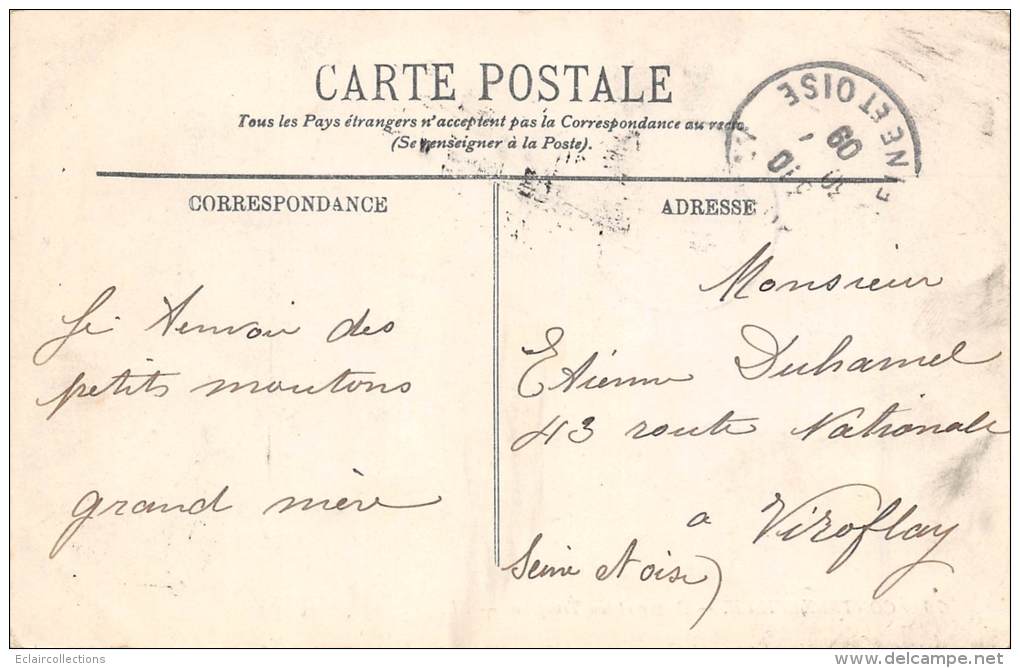 CARTE POSTALE
Tous les Pays étrangers n'acceptent pas la Correspondance au recto
(Se renseigner à la Poste).
CORRESPONDANCE
ADRESSE
EINE ET OISE
09
Monsieur
Etienne Duhamel
43 route Nationale
a Viroflay
Seine et oise)
des
petits moutons
grand mère
Eclaircollections
www.delcampe.net